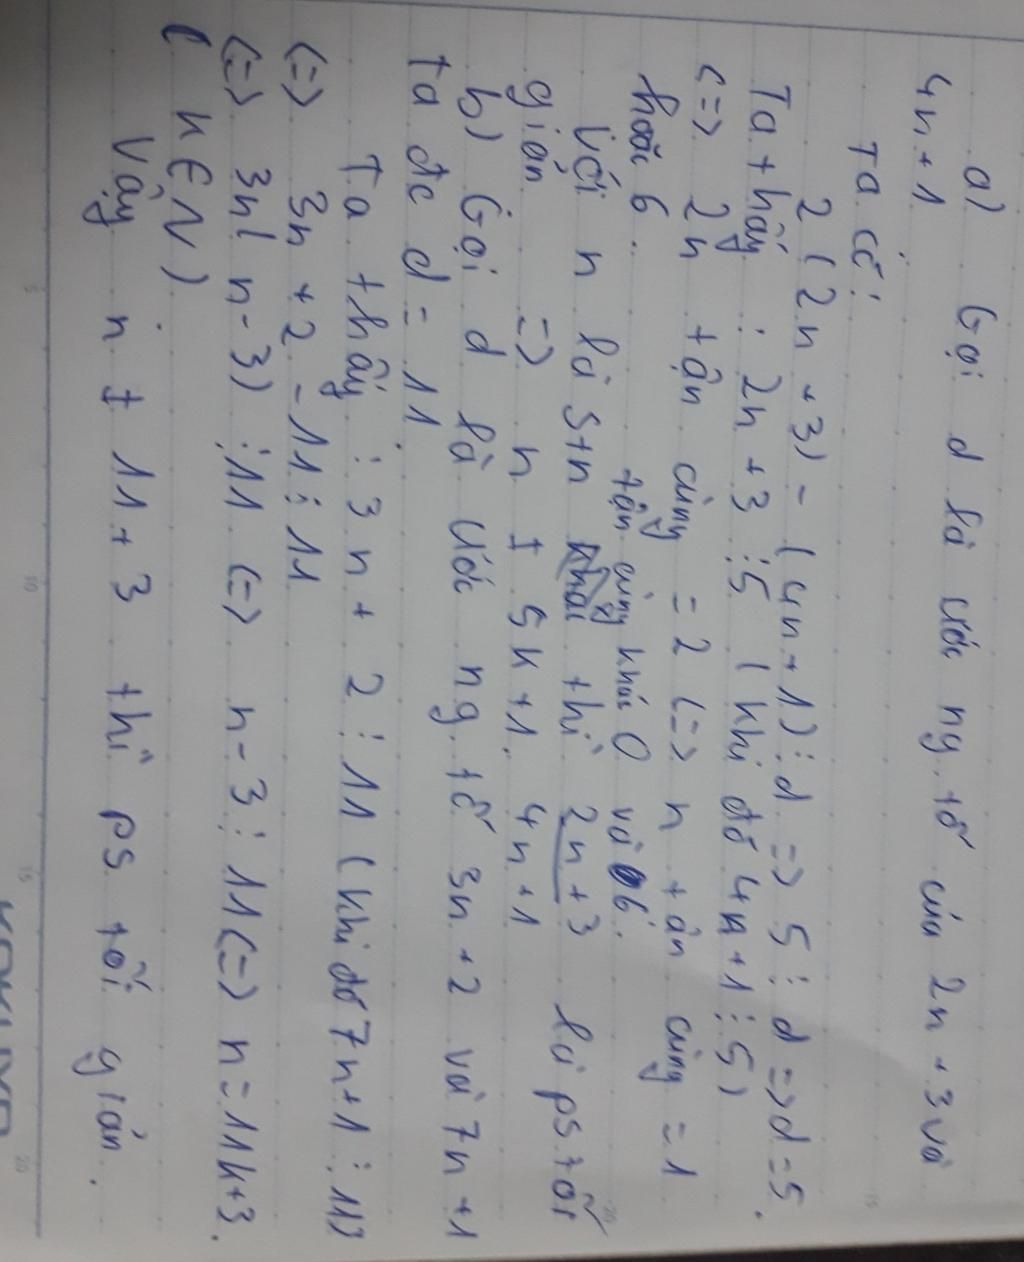 a) Gọi d là ước ng tố của 2n + 3 và
4n + 1
Ta có:
2 (2n + 3) - (4n + 1) ⋮ d => 5 ⋮ d => d = 5.
Ta thấy : 2n + 3 ⋮ 5 ( khi đó 4n + 1 ⋮ 5)
<=> 2n tận cùng = 2 <=> n tận cùng = 1
hoặc 6.
tận cùng khác 0 và 6.
Với n là stn thì 2n + 3 là ps tối
giản => n ≠ 5k + 1. 4n + 1
b) Gọi d là ước ng tố 3n + 2 và 7n + 1
ta đc d = 11
Ta thấy : 3n + 2 ⋮ 11 (khi đó 7n + 1 ⋮ 11)
<=> 3n + 2 - 11 ⋮ 11
<=> 3( n - 3) ⋮ 11 <=> n - 3 ⋮ 11 <=> n = 11k + 3.
( k ∈ N )
Vậy n ≠ 11 + 3 thì ps tối giản.
5
10
15
20